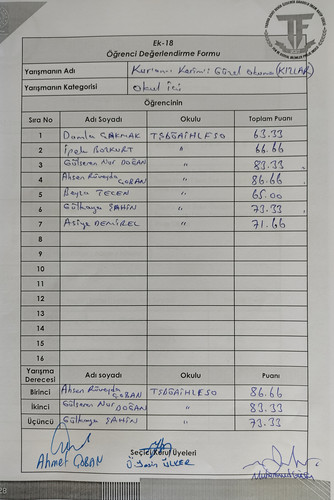 Ek-18
Öğrenci Değerlendirme Formu
Yarışmanın Adı Kur'anı Kerimi Güzel Okuma (KIZLAR)
Yarışmanın Kategorisi Okul İçi
Öğrencinin
Sıra No Adı Soyadı Okulu Toplam Puanı
1 Damla ÇAKMAK TŞBGAİHLESO 63.33
2 İpek BOZKURT " 66.66
3 Gülseren Nur DOĞAN " 83.33
4 Ahsen Rüveyda ÇOBAN " 86.66
5 TECEN " 65.00
6 Gülkaya ŞAHİN " 73.33
7 Asiye DEMİREL " 71.66
8
9
10
11
12
13
14
15
16
Yarışma Derecesi Adı soyadı Okulu Puanı
Birinci Ahsen Rüveyda ÇOBAN TŞBGAİHLESO 86.66
İkinci Gülseren Nur DOĞAN " 83.33
Üçüncü Gülkaya ŞAHİN " 73.33
Seçici Kurul Üyeleri
Ahmet ÇOBAN ÜLKER